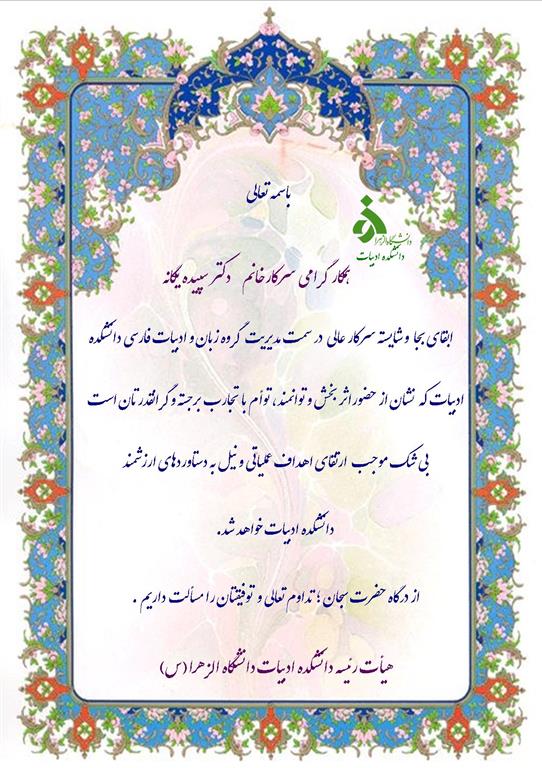 باسمه تعالی
دانشگاه الزهرا
دانشکده ادبیات
همکار گرامی سرکارخانم دکتر سپیده یگانه
ابقای بجا و شایسته سرکار عالی در سمت مدیریت گروه زبان و ادبیات فارسی دانشکده
ادبیات که نشان از حضور اثر بخش و توانمند، توأم با تجارب برجسته و گرانقدرتان است
بی شک موجب ارتقای اهداف عملیاتی و نیل به دستاوردهای ارزشمند
دانشکده ادبیات خواهد شد.
از درگاه حضرت سبحان ؛ تداوم تعالی و توفیقتان را مسألت داریم .
هیأت رئیسه دانشکده ادبیات دانشگاه الزهرا (س)